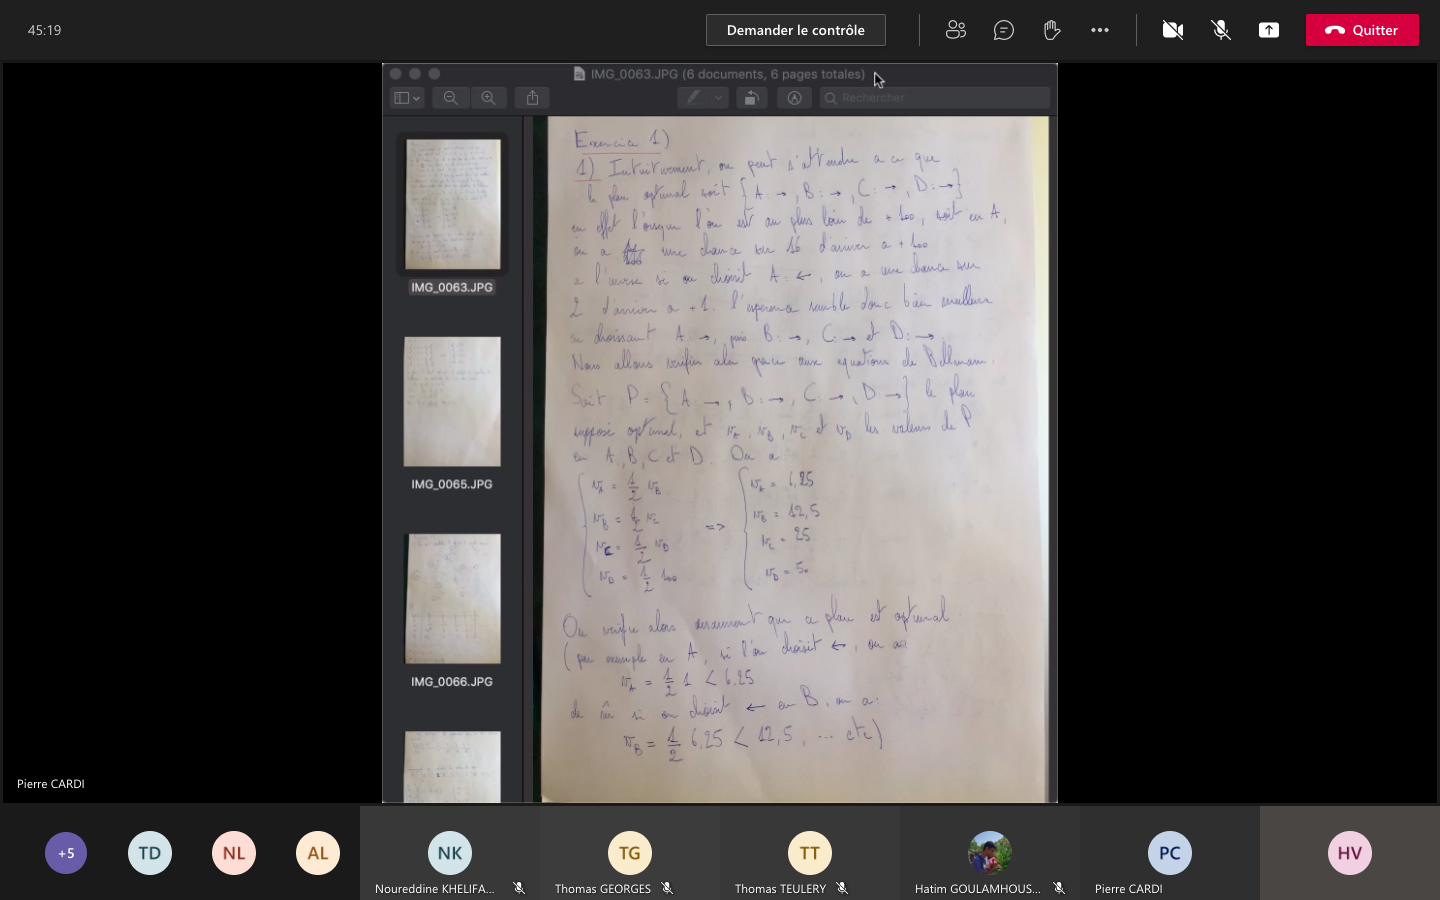 45:19
Demander le contrôle
Quitter
IMG_0063.JPG (6 documents, 6 pages totales)
Rechercher
IMG_0063.JPG
IMG_0065.JPG
IMG_0066.JPG
Exercice 1)
1) Intuitivement, on peut s'attendre a ce que
le plan optimal soit {A: →, B: →, C: →, D: →}
en effet lorsque l'on est au plus loin de +100, soit en A,
on a une chance sur 16 d'arriver a +100
a l'inverse si on choisit A: ←, on a une chance sur
2 d'arriver a +1. l'esperance semble donc bien meilleure
en choisissant A: →, puis B: →, C: → et D: →.
Nous allons verifier cela grace aux equations de Bellmann.
Soit P = {A: →, B: →, C: →, D: →} le plan
supposé optimal, et v_A, v_B, v_C et v_D les valeurs de P
en A, B, C et D. On a
v_A = 1/2 v_B
v_B = 1/2 v_C
v_C = 1/2 v_D
v_D = 1/2 100
=>
v_A = 6,25
v_B = 12,5
v_C = 25
v_D = 50
On verifie alors que ce plan est optimal.
(par exemple en A, si l'on choisit ←, on a
v_A = 1/2 1 < 6,25
de m̂ si on choisit ← en B, on a:
v_B = 1/2 6,25 < 12,5, ... etc)
Pierre CARDI
+5
TD
NL
AL
NK
TG
TT
PC
HV
Noureddine KHELIFA...
Thomas GEORGES
Thomas TEULERY
Hatim GOULAMHOUS...
Pierre CARDI